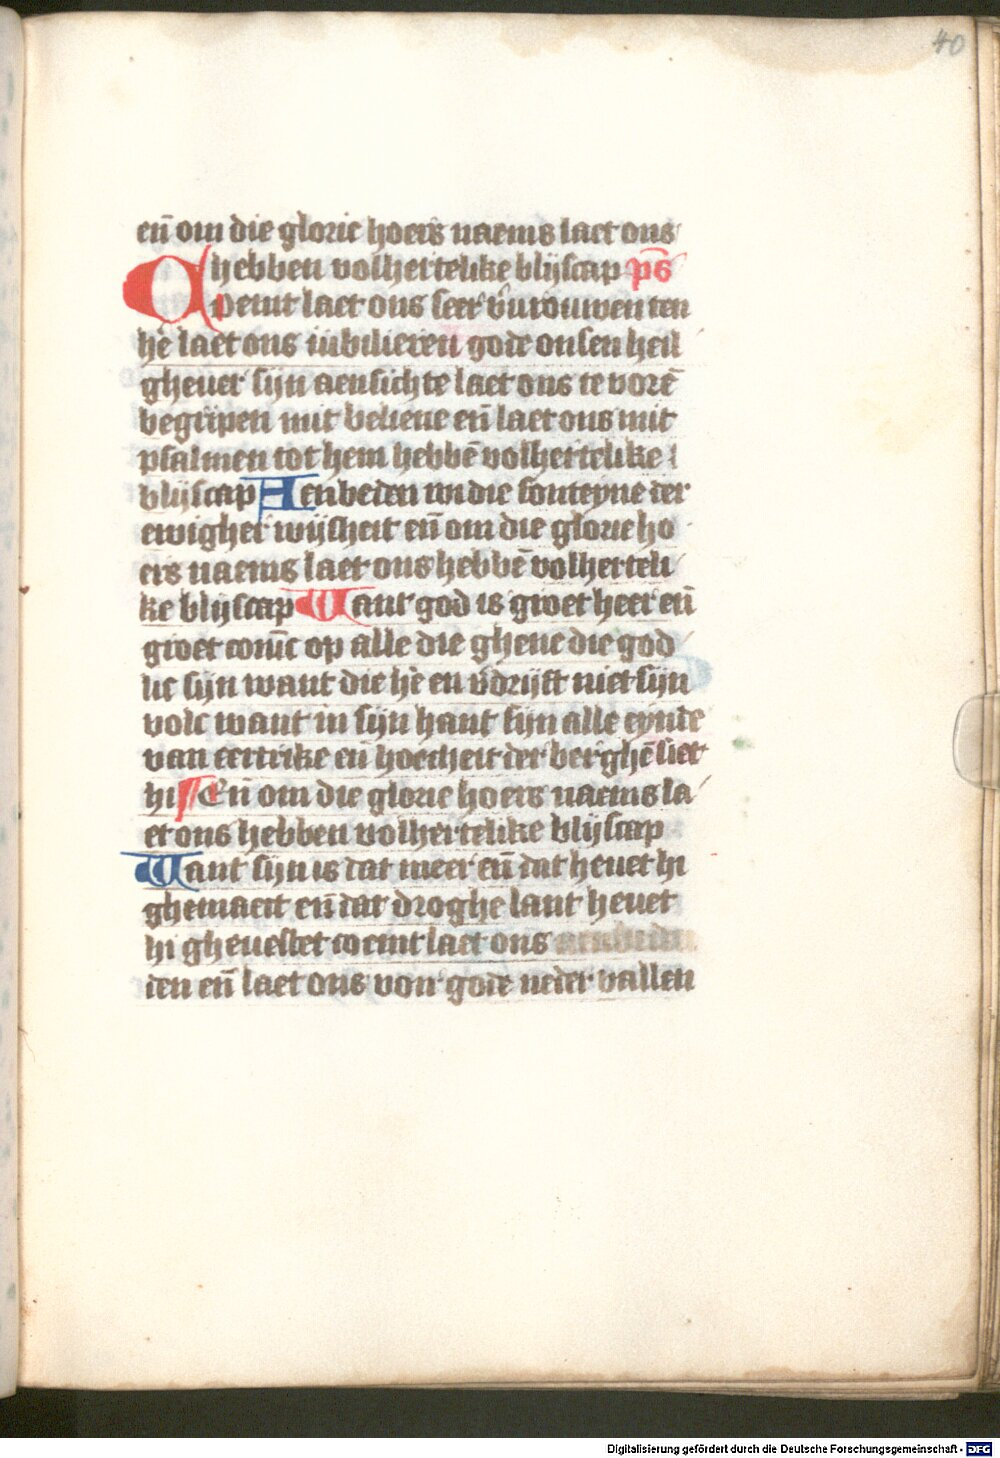 40
en̄ om die glorie hoers naems laet ons
hebben volhertelike blijscap p̄s
Coemt laet ons seer v̄vrouwen ten
hē laet ons iubilieren gode onsen heil
gheuer sijn aensichte laet ons te vorē
begripen mit beliene en̄ laet ons mit
psalmen tot hem hebbē volhertelike
blijscap Aenbeden wi die fonteyne der
ewigher wijsheit en̄ om die glorie ho
ers naems laet ons hebbē volherteli
ke blijscap Want god is groet heer en̄
groet conīc op alle die ghene die god
lic sijn want die hē en v̄drijft niet sijn
volc want in sijn hant sijn alle eynde
van eertrike en̄ hoecheit der berghē siet
hi En̄ om die glorie hoers naems la
et ons hebben volhertelike blijscap
Want sijn is dat meer en̄ dat heuet hi
ghemaect en̄ dat droghe lant heuet
hi gheuestet coemt laet ons
den en̄ laet ons voir gode neder vallen
Digitalisierung gefördert durch die Deutsche Forschungsgemeinschaft - DFG